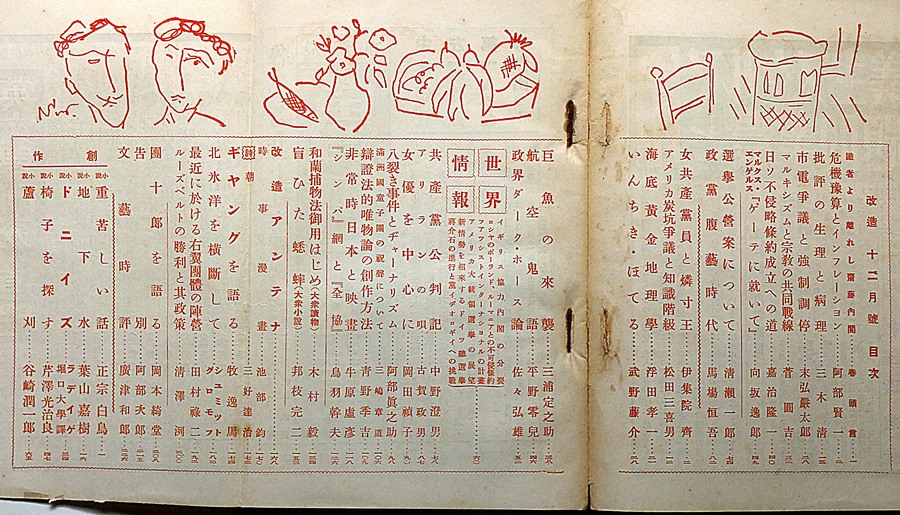 改造 十二月號 目次
民衆より離れし齋藤内閣 卷頭言
危機豫算とインフレーション 阿部賢一
批評の生理と病理 三木清
市電爭議と強制調停 末弘嚴太郎
マルキシズムと宗教の共同戰線 菅圓吉
日ソ不侵略條約成立への道 嘉治隆一
マルクス・エンゲルス『ゲーテに就いて』 向坂逸郎
選擧公營案について 清瀬一郎
政黨腹藝時代 馬場恒吾
女共產黨員と燐寸王 伊集院齊
アメリカ炭坑爭議と知識階級 松田二三男
海底黃金地理學 浮田孝一
いんちき・ほてる 武野藤介
巨魚の來襲 三浦定之助
航空鬼語 平野零兒
政界ダーク・ホース論 佐々弘雄
世界情報
イギリス協力内閣の分裂
ロシヤのポーランド、ルーマニアとの不可侵條約
フアツシストインターナショナルの計畫
アメリカ大統領選擧の展望
新情勢を招來するドイツ總選擧
蔣介石の進行と黨イデオロギイへの挑戰
共產黨公判記 中野澄男
アリランの唄 古賀政男
女優を中心に 岡田禎子
八裂き事件とヂャーナリズム 阿部眞之助
滿洲國童子團の祝聲について 三嶋章道
辯證法的唯物論の創作方法 靑野季吉
非常時日本と映畫 牛原虛彥
『ジンパ』網と『全協』 鳥羽幹夫
和蘭捕物法御用はじめ(大衆讀物) 木村毅
盲ひた蟋蟀(大衆小說) 邦枝完二
改造アンテナ
時事漫畫 池部鈞
詩 朝 三好達治
ギャングを語る 牧逸馬
北氷洋を横斷して シュミット グロモフ
最近に於ける右翼團體の陣營 田村禄二
ルーズベルトの勝利と其政策 清澤洌
團十郞を語る 岡本綺堂
告別 阿部次郎
文藝時評 廣津和郎
創作
小說 重苦しい話 正宗白鳥
小說 地下水 葉山嘉樹
小說 ドニイズ ラディゲ 堀口大學譯
小說 椅子を探す 芹澤光治良
小說 蘆刈 谷崎潤一郎